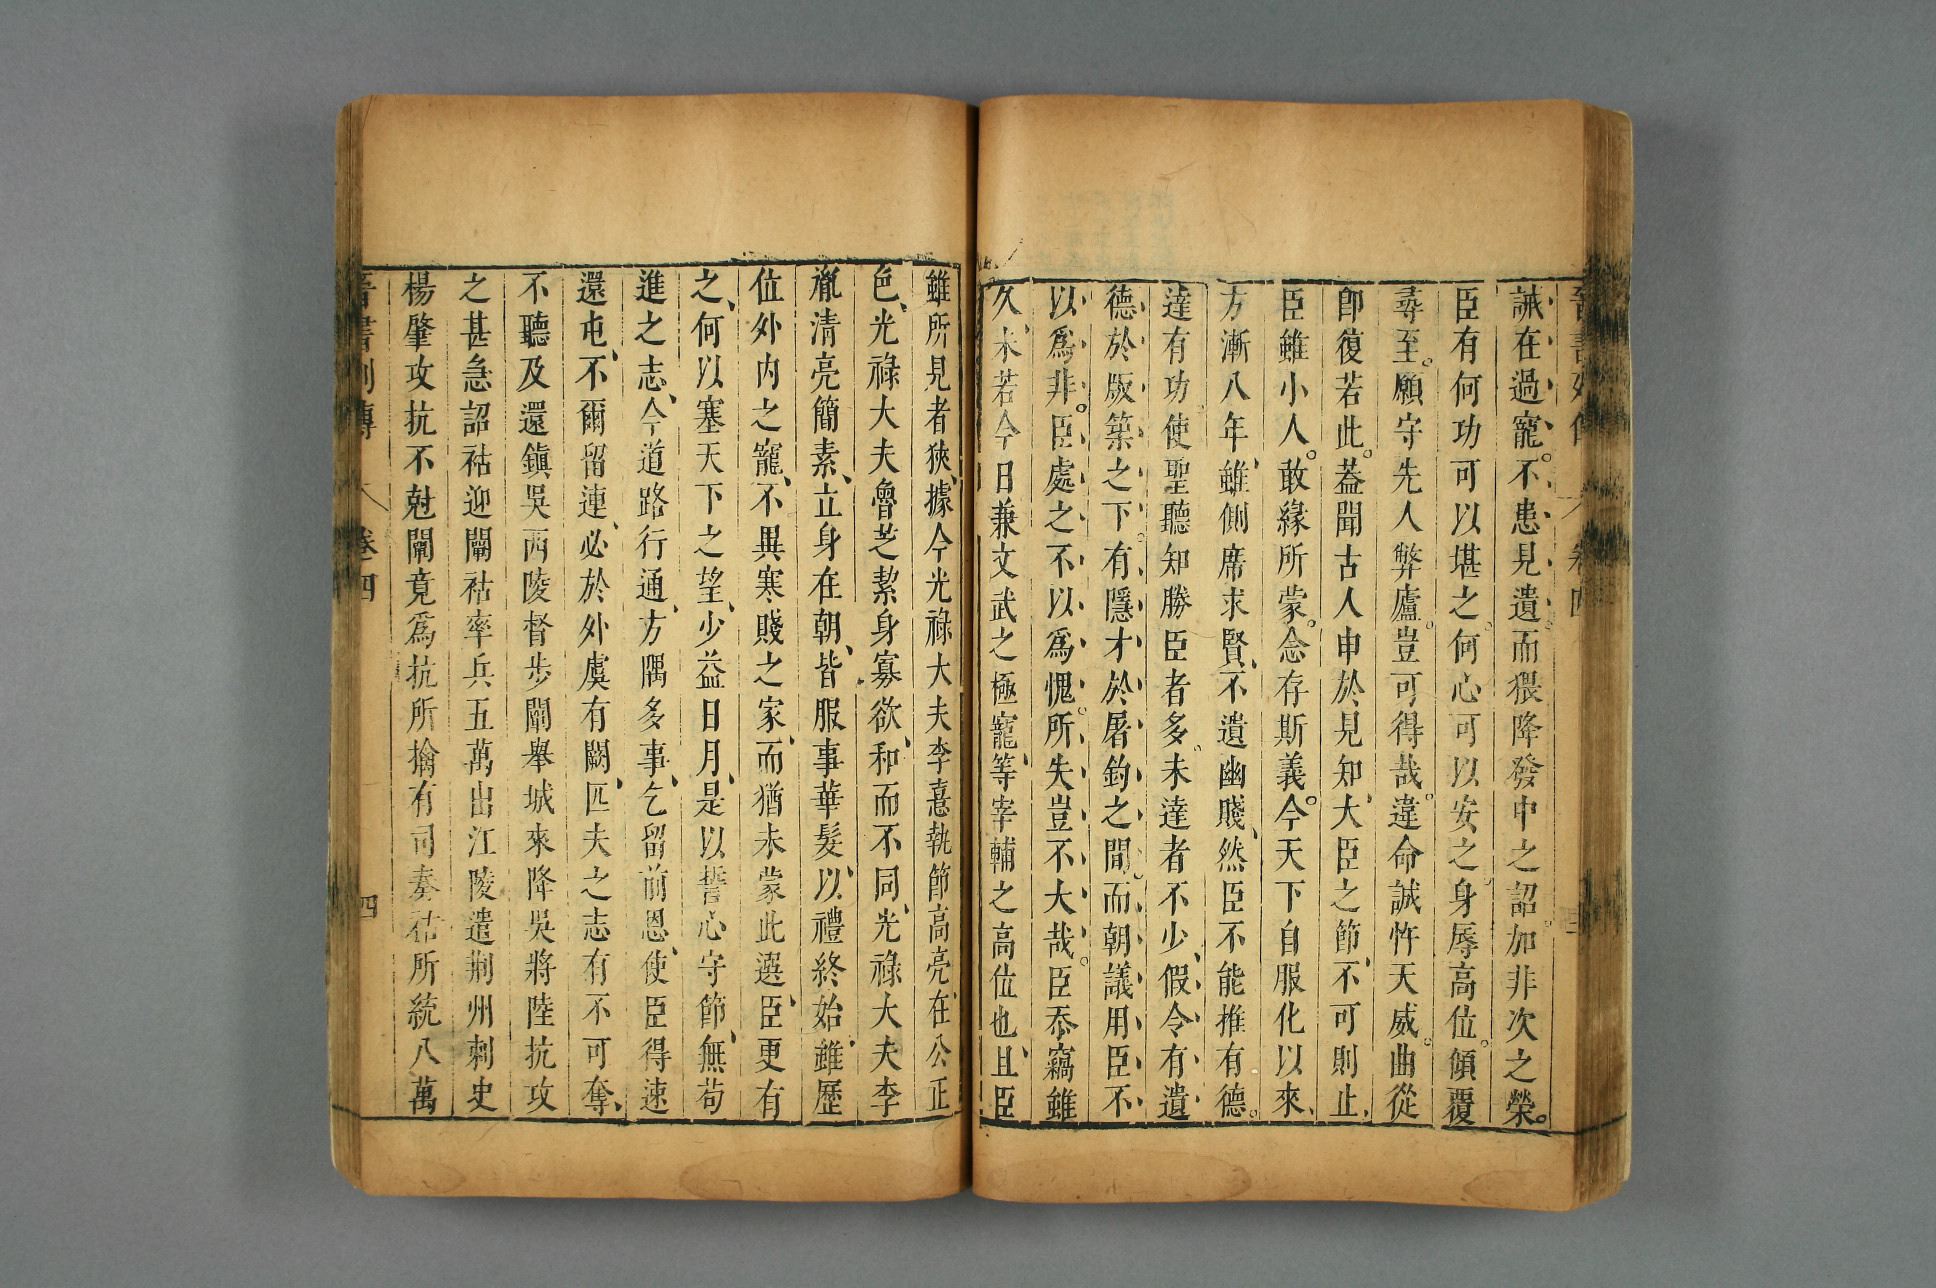 誡在過寵不患見遺而猥降發中之詔加非次之榮
臣有何功可以堪之何心可以安之身辱高位傾覆
尋至願守先人弊廬豈可得哉違命誠忤天威曲從
卽復若此葢聞古人申於見知大臣之節不可則止
臣雖小人敢緣所蒙念存斯義今天下自服化以來
方漸八年雖側席求賢不遺幽賤然臣不能推有德
達有功使聖聽知勝臣者多未達者不少假令有遺
德於版築之下有隱才於屠釣之間而朝議用臣不
以爲非臣處之不以爲愧所失豈不大哉臣忝竊雖
久未若今日兼文武之極寵等宰輔之高位也且臣
雖所見者狹據今光祿大夫李憙執節高亮在公正
色光祿大夫魯芝絜身寡欲和而不同光祿大夫李
胤清亮簡素立身在朝皆服事華髮以禮終始雖歷
位外內之寵不異寒賤之家而猶未蒙此選臣更有
之何以塞天下之望少益日月是以誓心守節無苟
進之志今道路行通方隅多事乞留前恩使臣得速
還屯不爾留連必於外虞有闕匹夫之志有不可奪
不聽及還鎭吳西陵督步闡舉城來降吳將陸抗攻
之甚急詔祜迎闡祜率兵五萬出江陵遣荆州刺史
楊肇攻抗不尅闡竟爲抗所擒有司奏祜所統八萬
晉書列傳 卷四 四